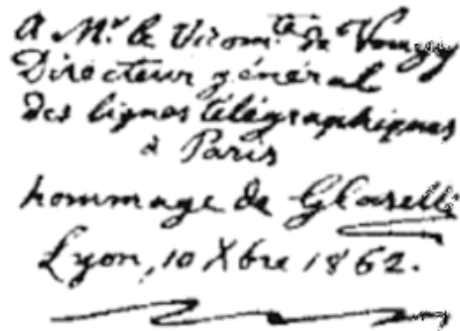 A Mr. le Vicomte de Vougy
Directeur général
des lignes télégraphiques
à Paris
hommage de GCaselli
Lyon, 10 Xbre 1862.